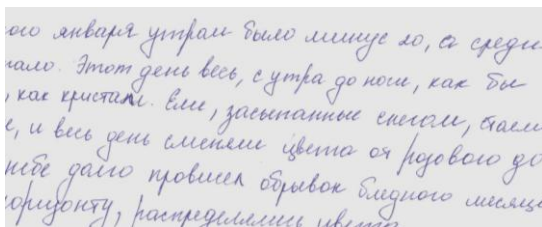 ого января утрам было минус 20, а средн
тало. Этот день весь, с утра до ночи, как бы
, как кристалл. Ели, засыпанные снегом, стаяли
е, и весь день сменяли цвета от розового до
небе долго провисел обрывок бледного месяца
горизонту, распределялись цвета